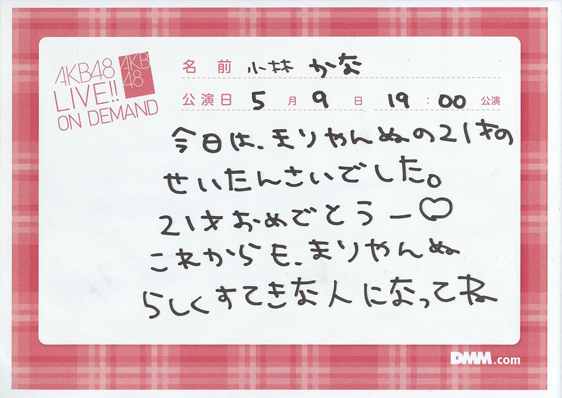 AKB48
LIVE!!
ON DEMAND
AKB
48
名前 小林 かな
公演日 5月9日 19:00公演
今日は、まりやんぬの21才の
せいたんさいでした。
21才おめでとうー♡
これからも、まりやんぬ
らしくすてきな人になってね
DMM.com